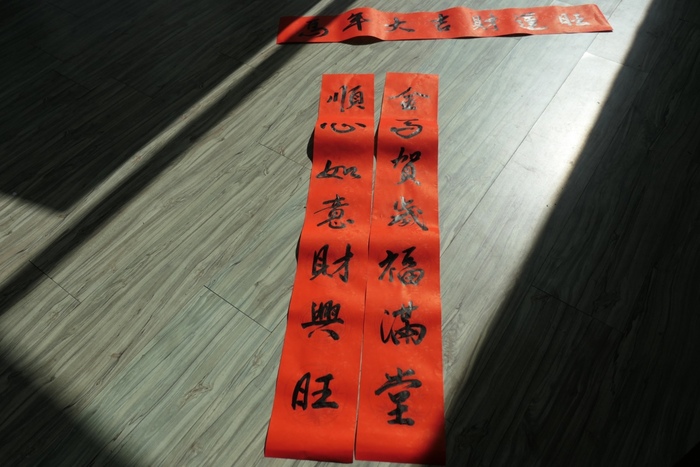 馬年大吉財運旺
金马賀歲福滿堂
順心如意財興旺